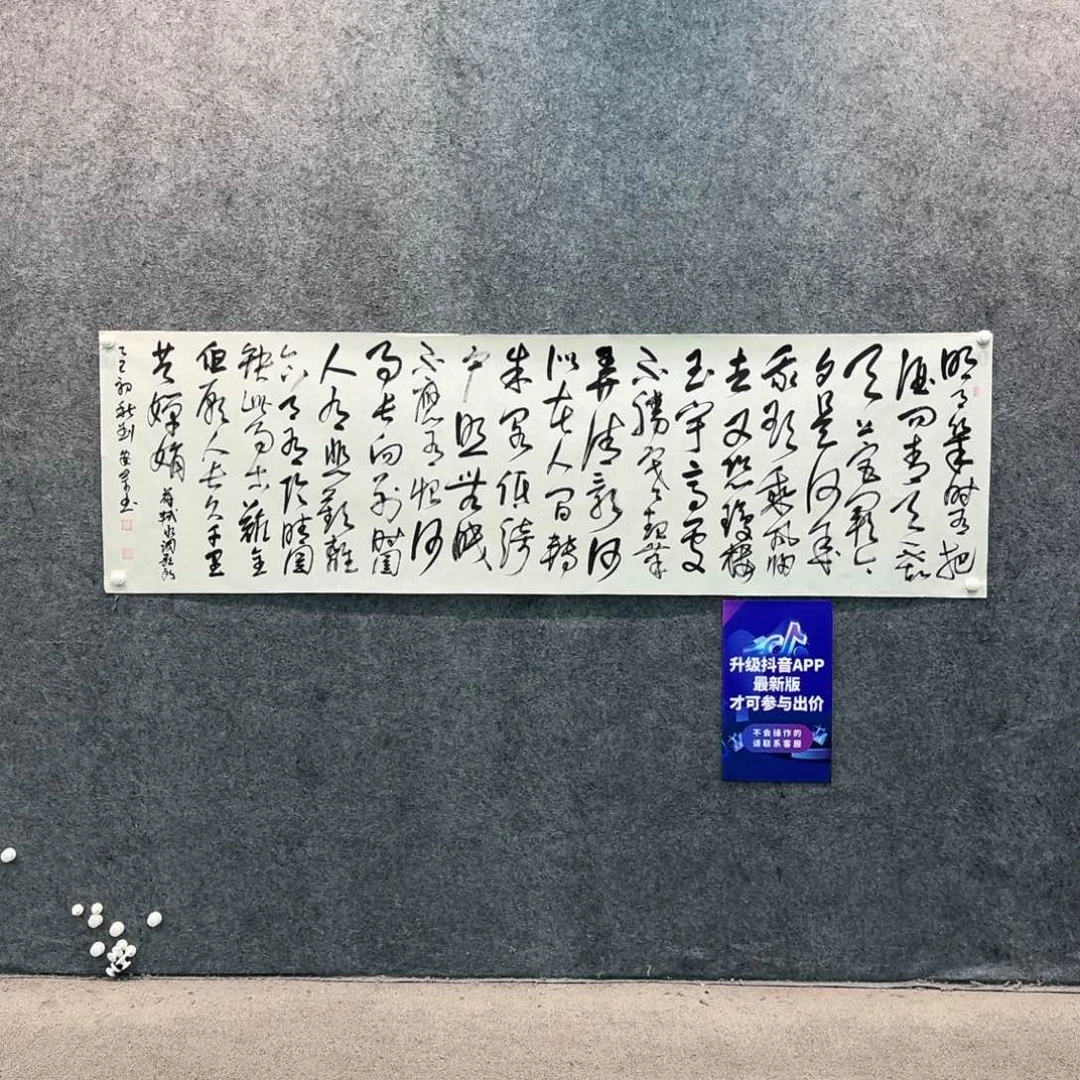 明月幾時有把
酒問青天不知
天上宮闕今
夕是何年
我欲乘風歸
去又恐瓊樓
玉宇高處
不勝寒起舞
弄清影何
似在人間轉
朱閣低綺
戶照無眠
不應有恨何
事長向別時圓
人有悲歡離
合月有陰晴圓
缺此事古難全
但願人長久千里
共嬋娟
蘇軾水調歌頭
乙巳初秋劉
升级抖音APP
最新版
才可参与出价
不会操作的
请联系客服